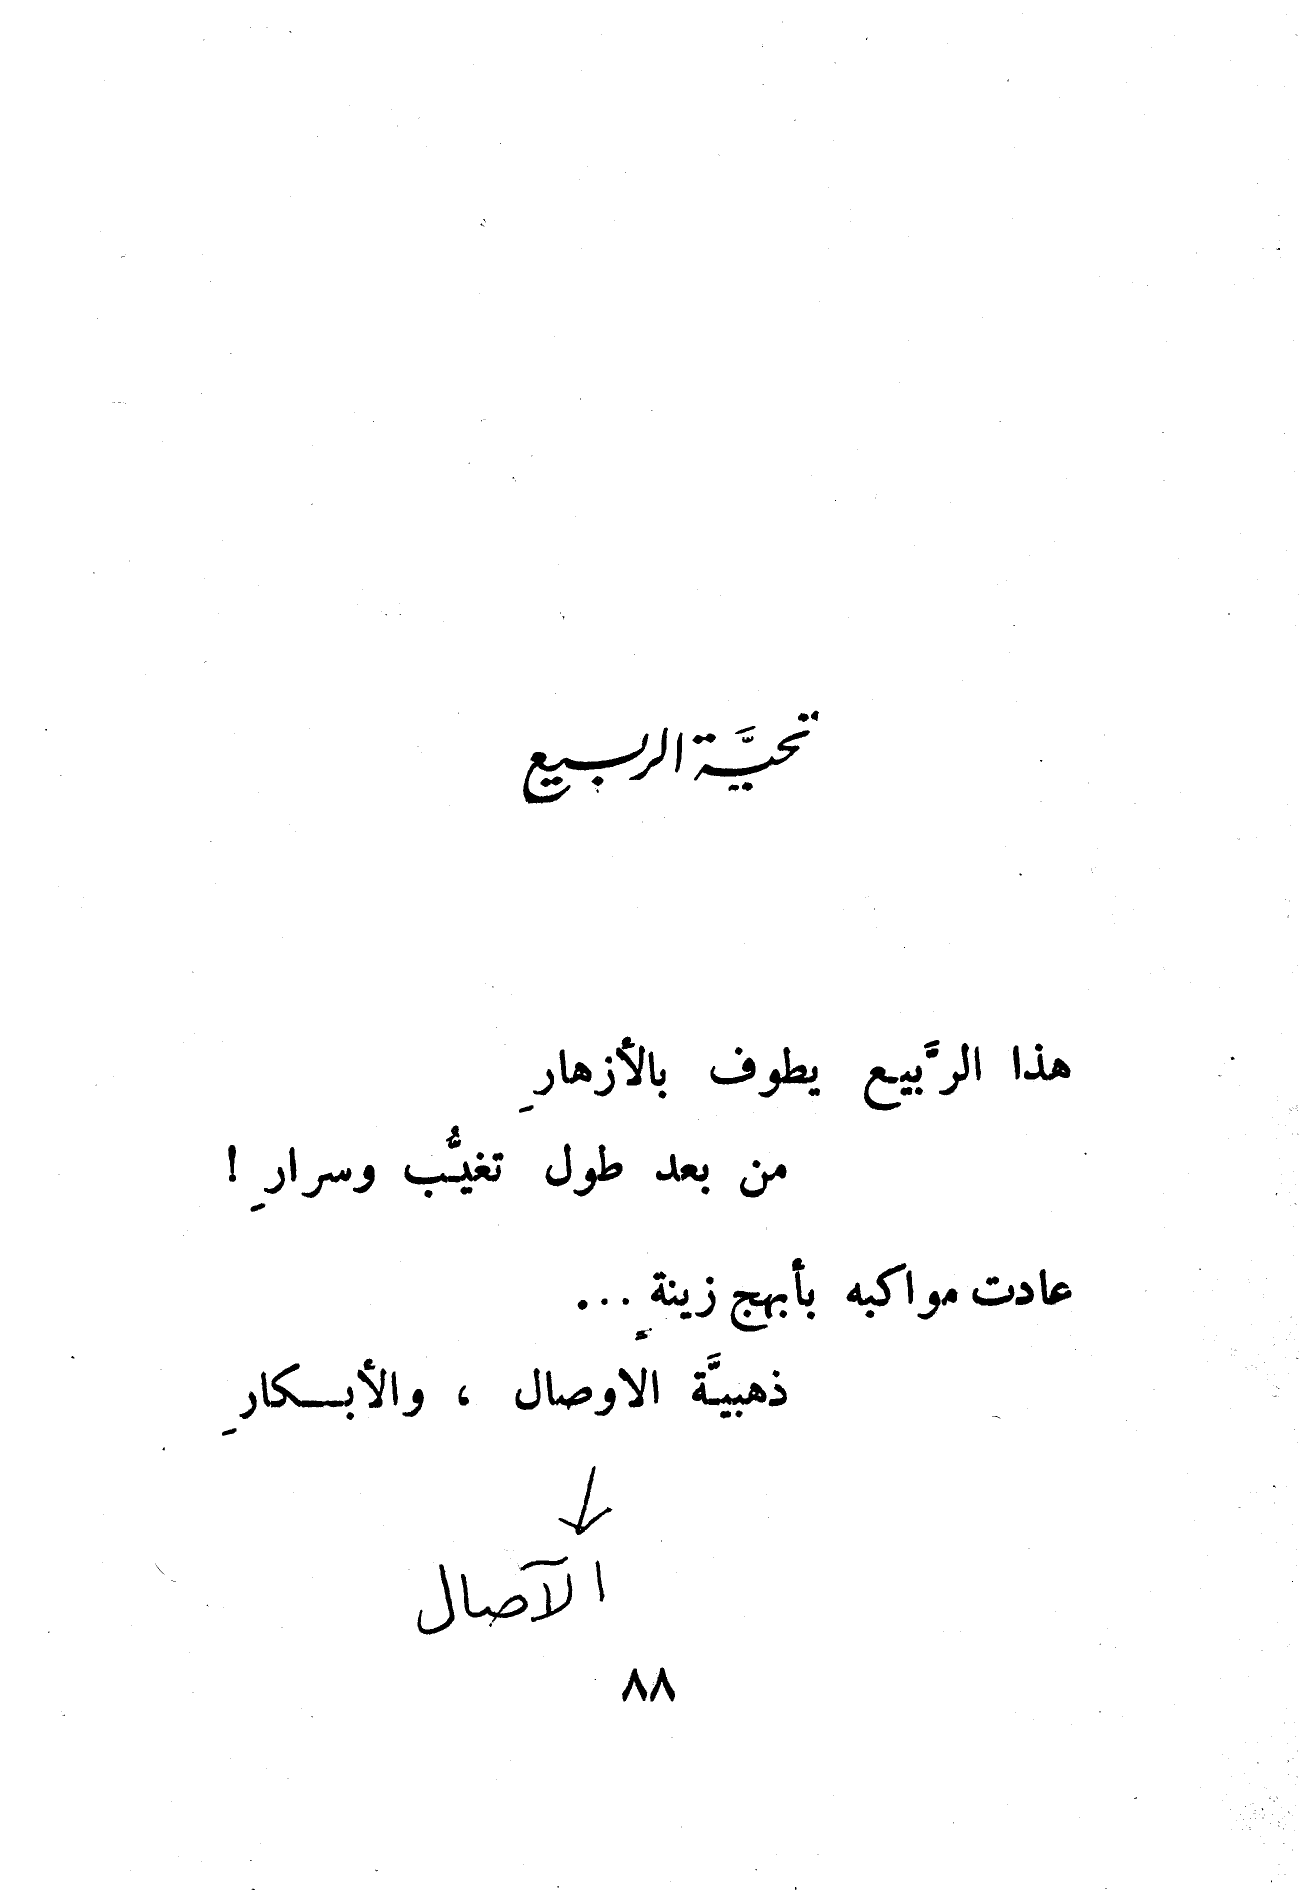 تحيَّة الربيع
هذا الرَّبيع يطوف بالأزهارِ
من بعد طول تغيُّب وسرارِ !
عادت مواكبه بأبهج زينةٍ ...
ذهبيَّة الاوصال ، والأبكارِ
الآصال
٨٨